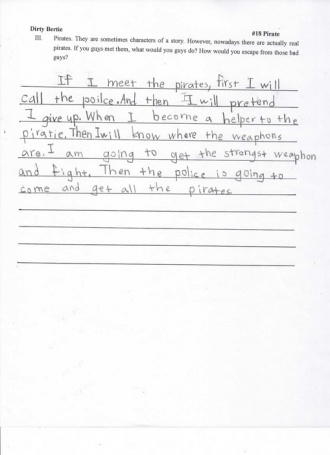 Dirty Bertie
#18 Pirate
III. Pirates. They are sometimes characters of a story. However, nowadays there are actually real
pirates. If you guys met them, what would you guys do? How would you escape from those bad
guys?
If I meet the pirates, first I will
call the poilce. And then I will pretend
I give up. When I become a helper to the
piratie. Then I will know where the weaphons
are. I am going to get the strongst weaphon
and fight. Then the police is going to
come and get all the pirates